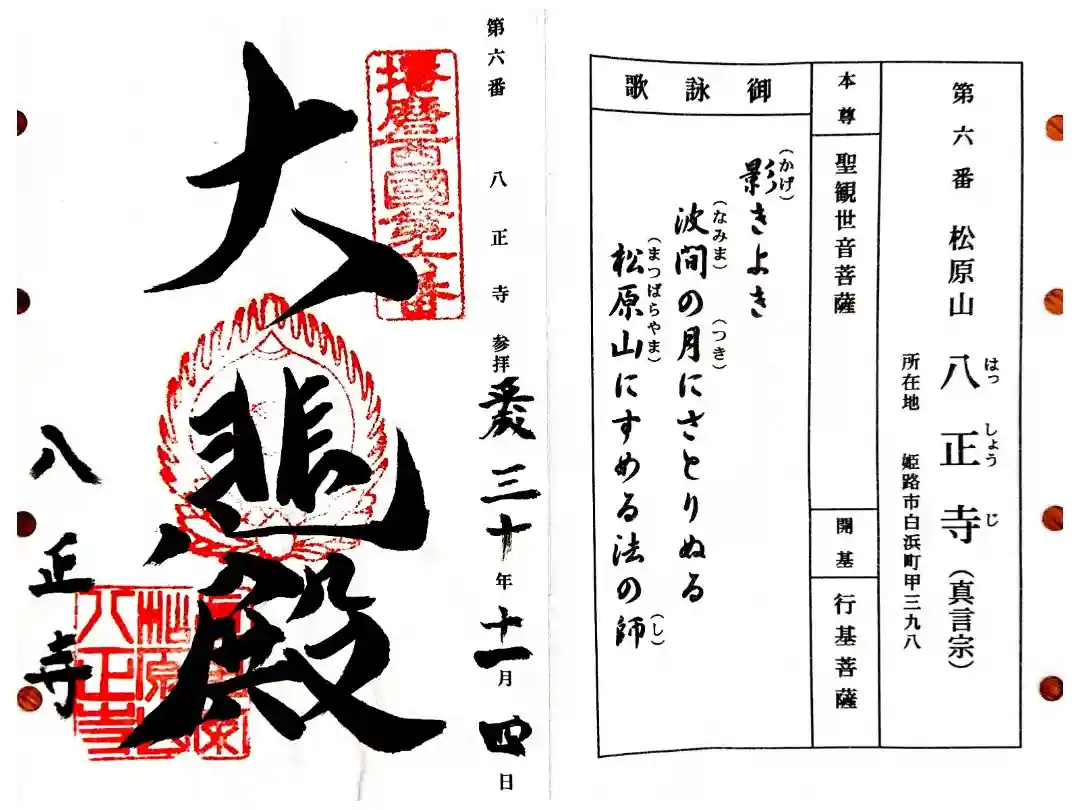 第六番 松原山 八正寺（真言宗）
はっしょうじ
所在地 姫路市白浜町甲三九八
本尊
聖観世音菩薩
開基
行基菩薩
御詠歌
影きよき
（かげ）
波間の月にさとりぬる
（なみま）（つき）
松原山にすめる法の師
（まつばらやま）（し）
第六番 八正寺 参拝
平成三十年十一月四日
播磨西國第六番
大悲殿
八正寺
八正寺